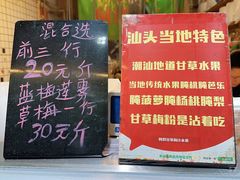 混合选
前三行
20元斤
蓝莓莲雾
草莓一行
30元斤
汕头当地特色
潮汕地道甘草水果
当地传统水果腌桃腌芭乐
腌菠萝腌杨桃腌梨
甘草梅粉是沾着吃